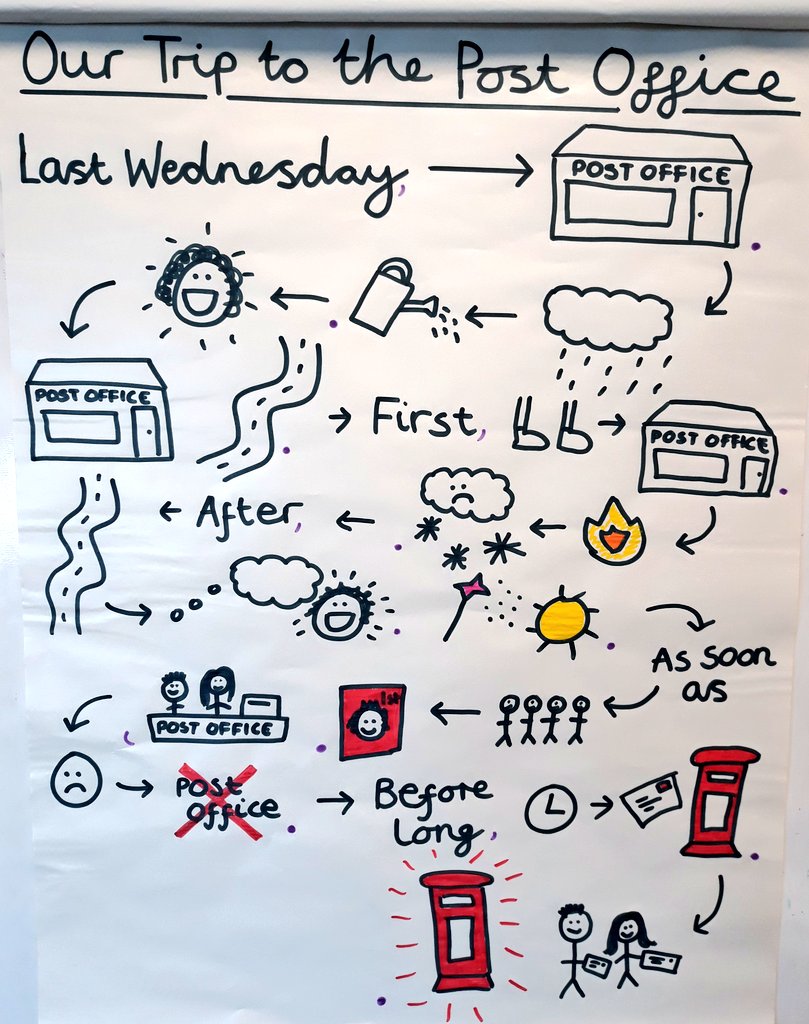 Our Trip to the Post Office
Last Wednesday,
POST OFFICE
POST OFFICE
First,
POST OFFICE
After,
As soon
as
1st
POST OFFICE
Post
Office
Before
Long,